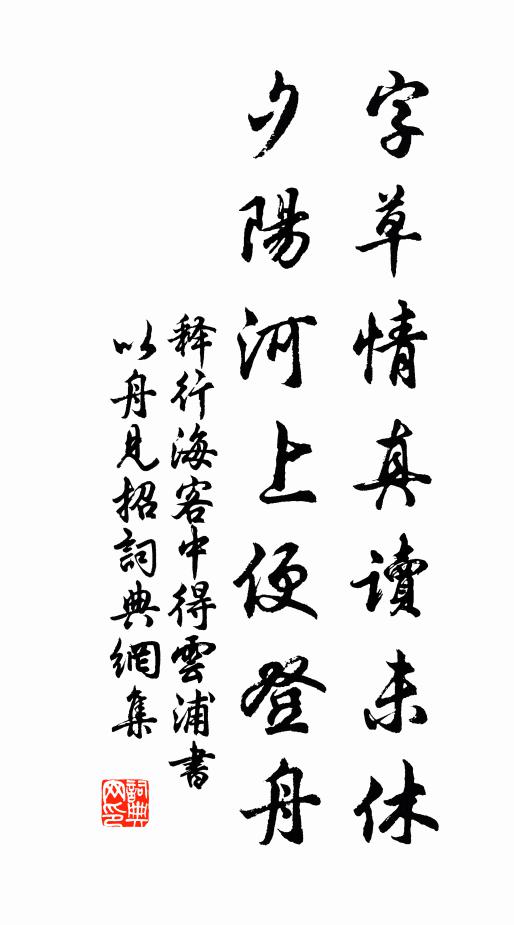 字草情真讀未休
夕陽河上便登舟
释行海客中得雲浦書
以舟見招詞典網集
詞典
网印